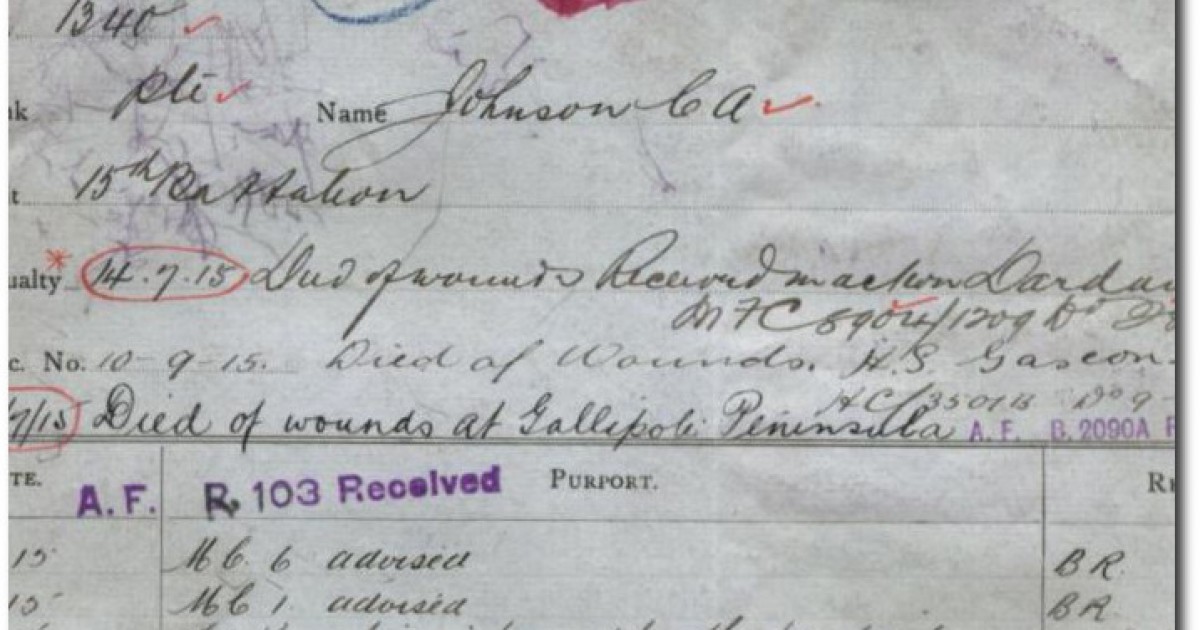 1340
nk Pte Name Johnson C A
t 15th Battalion
ualty 14.7.15 Died of wounds Received in action Dardan
M F C 8904/1209
c. No. 10-9-15. Died of Wounds. H.S. Gascon.
7/15 Died of wounds at Gallipoli Peninsula A.F. B.2090A
TE. A.F. R. 103 Received PURPORT. R
15 M C 6 advised B R.
15 M C 1 advised B R.